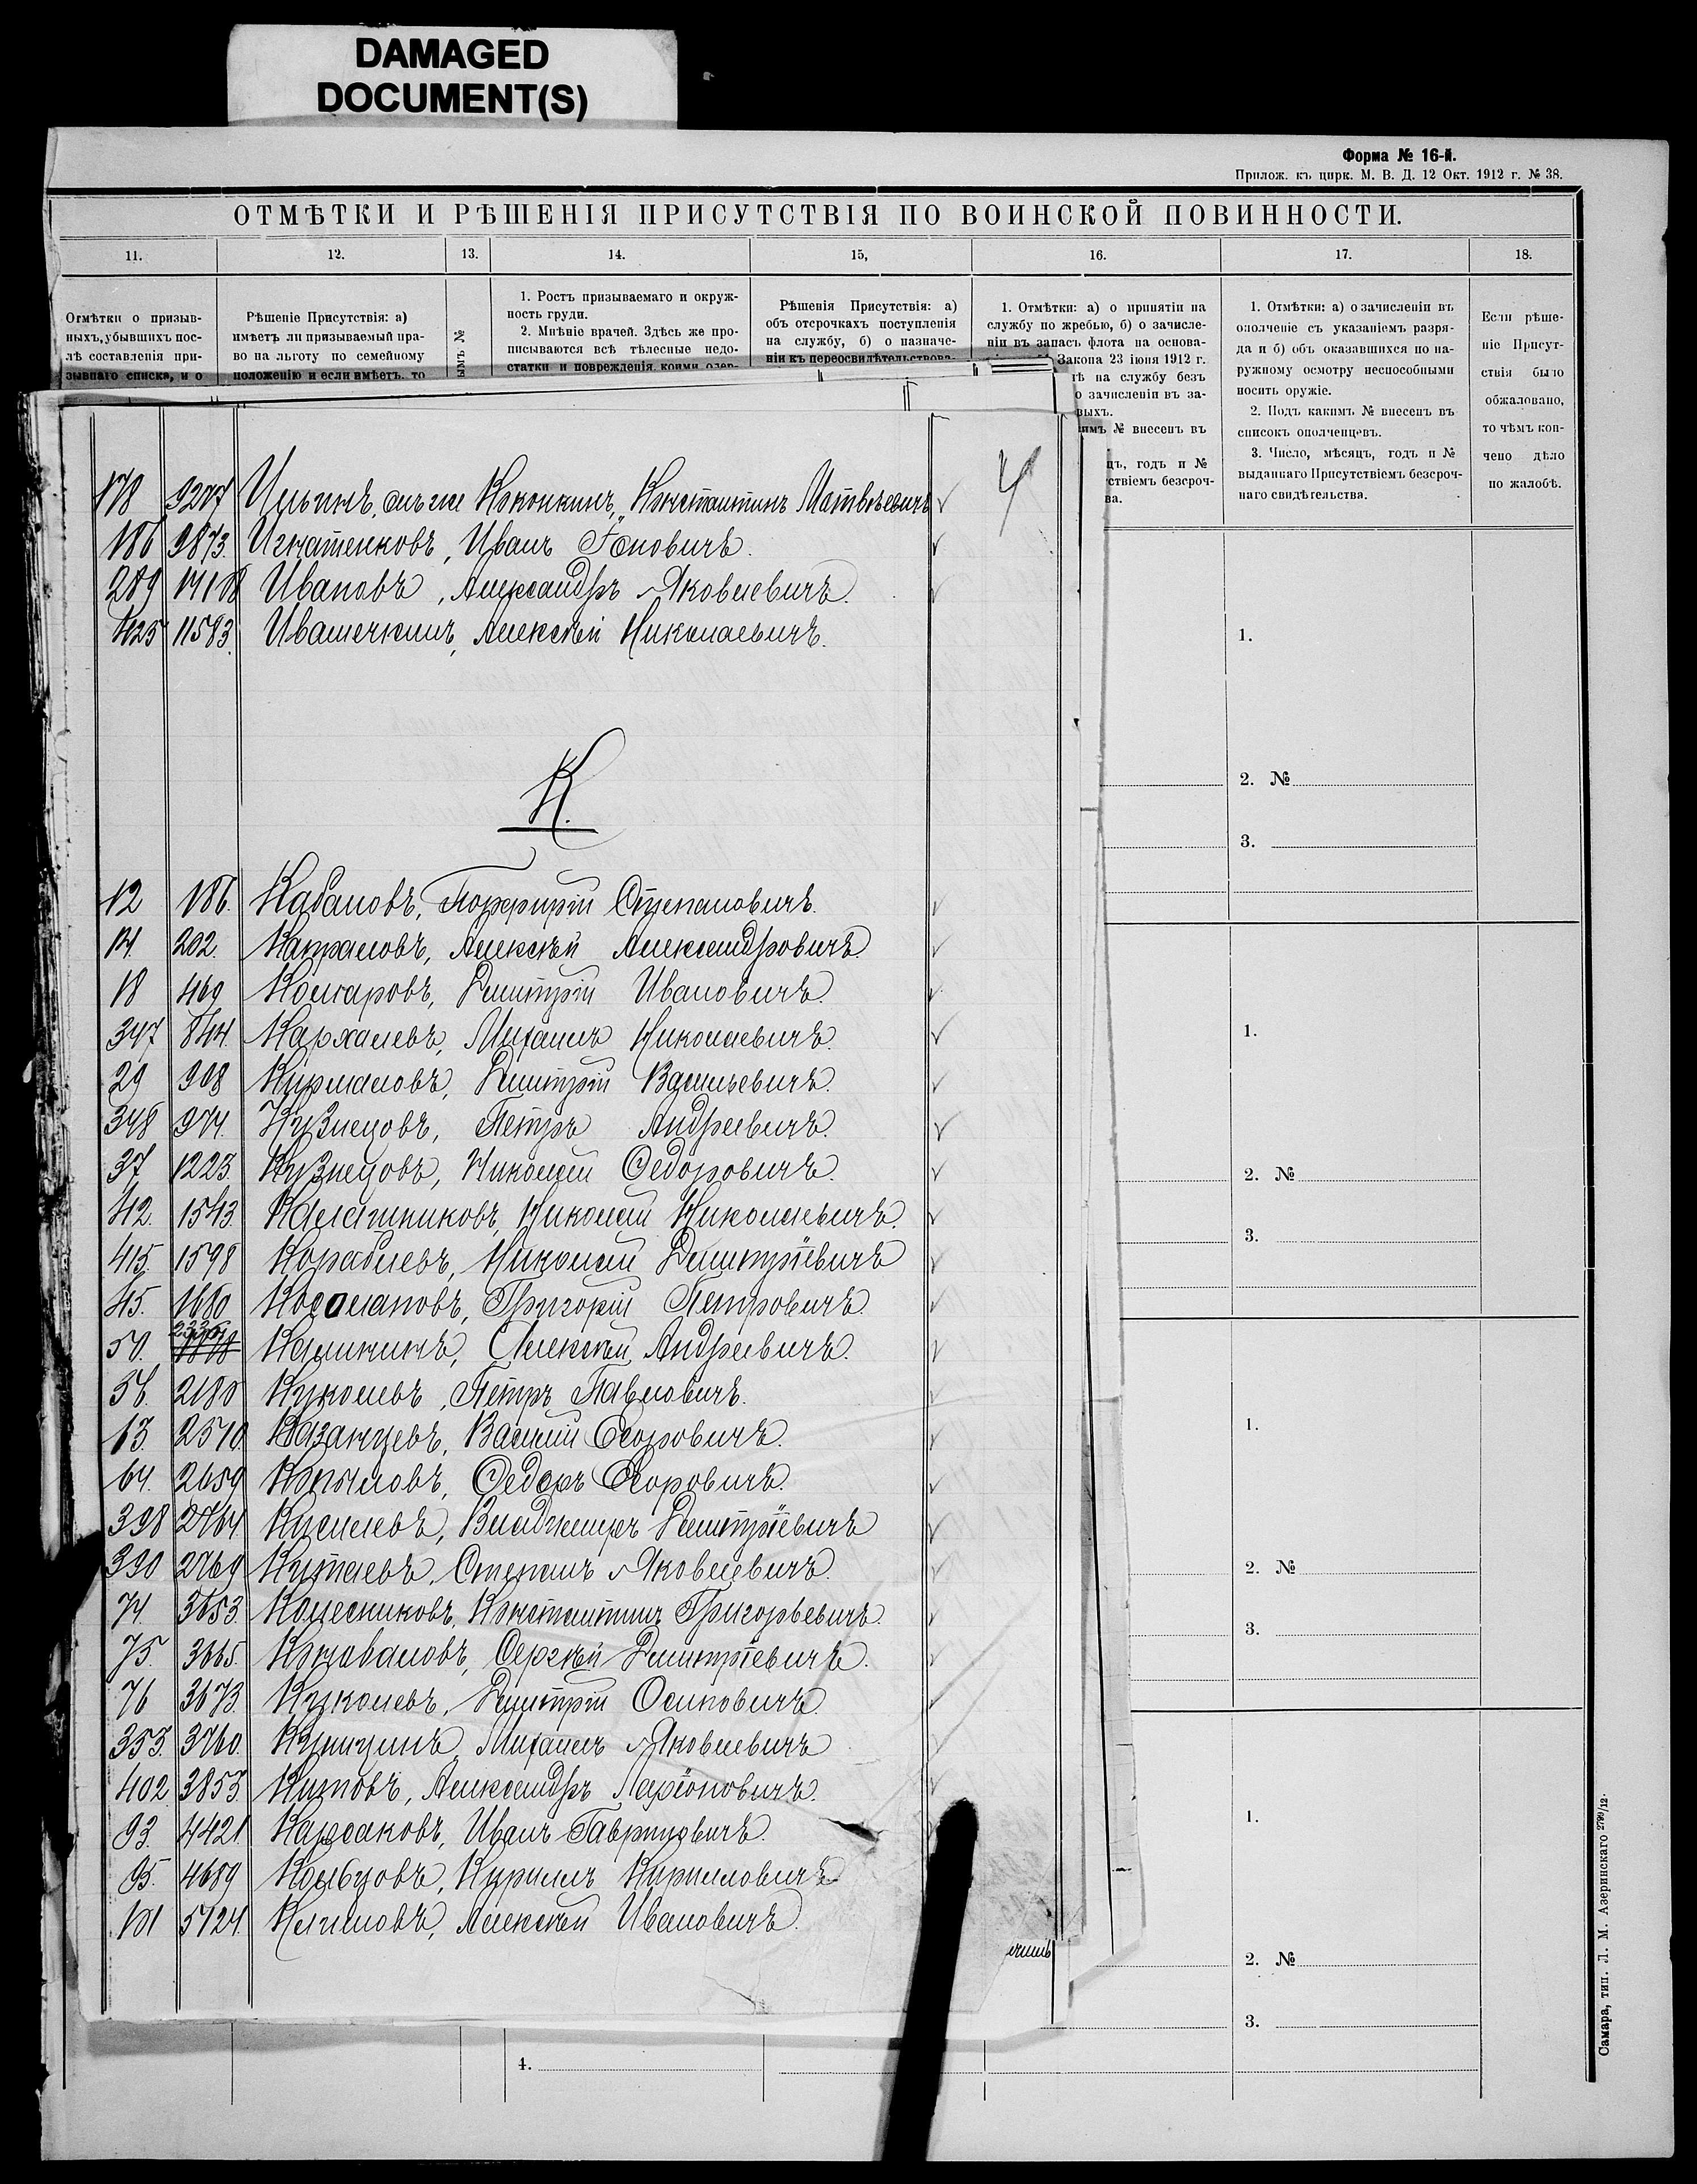 DAMAGED
DOCUMENT(S)
Форма № 16-й.
Прилож. къ цирк. М. В. Д. 12 Окт. 1912 г. № 38.
ОТМѢТКИ И РѢШЕНІЯ ПРИСУТСТВІЯ ПО ВОИНСКОЙ ПОВИННОСТИ.
11. 12. 13. 14. 15, 16. 17. 18.
Отмѣтки о призыв-
ныхъ, убывшихъ пос-
лѣ составленія при-
зывнаго списка, и о
Рѣшеніе Присутствія: а)
имѣетъ ли призываемый пра-
во на льготу по семейному
положенію и если имѣетъ, то
ымъ №
1. Ростъ призываемаго и окруж-
ность груди.
2. Мнѣніе врачей. Здѣсь же про-
писываются всѣ тѣлесные недо-
статки и поврежденія, коими одер-
Рѣшенія Присутствія: а)
объ отсрочкахъ поступленія
на службу, б) о назначе-
ніи къ переосвидѣтельствова-
1. Отмѣтки: а) о принятіи на
службу по жребью, б) о зачисле-
ніи въ запасъ флота на основа-
Закона 23 іюня 1912 г.
ѣ на службу безъ
о зачисленіи въ за-
выхъ.
имъ № внесенъ въ
цъ, годъ и №
ствіемъ безсроч-
ва.
1. Отмѣтки: а) о зачисленіи въ
ополченіе съ указаніемъ разря-
да и б) объ оказавшихся по на-
ружному осмотру неспособными
носить оружіе.
2. Подъ какимъ № внесенъ въ
списокъ ополченцевъ.
3. Число, мѣсяцъ, годъ и №
выданнаго Присутствіемъ безсроч-
наго свидѣтельства.
Если рѣше-
ніе Присут-
ствія было
обжаловано,
то чѣмъ кон-
чено дѣло
по жалобѣ.
4
178 9277 Ильинъ, онъ же Коконкинъ, Константинъ Матвѣевичъ
186 9873. Игнатенковъ, Иванъ
289 Ивановъ, Александръ Яковлевичъ.
425 11583. Ивашечкинъ, Алексѣй Николаевичъ.
К.
12 186. Кабановъ, Порфирій Степановичъ.
14. 202. Катраловъ, Алексѣй Александровичъ.
18 469 Комаровъ, Дмитрій Ивановичъ.
347 844. Кархалевъ, Михаилъ Николаевичъ.
29 908 Кирмаловъ, Дмитрій Васильевичъ.
348 974. Кузнецовъ, Петръ Андреевичъ.
37. 1223. Кузнецовъ, Николай Федоровичъ.
42. 1543. Калашниковъ, Николай Николаевичъ.
415. 1598 Кораблевъ, Николай Дмитріевичъ
45. 1680 Косолаповъ, Григорій Петровичъ.
50. 2336 Калининъ, Алексѣй Андреевичъ.
56. 2180 Куколевъ, Петръ Павловичъ.
63. 2570 Казанцевъ, Василій Егоровичъ.
64. 2659 Копыловъ, Федоръ Егоровичъ.
398 2764 Киселевъ, Владимиръ Дмитріевичъ
390 2769 Китаевъ, Степанъ Яковлевичъ.
74. 3653. Колесниковъ, Константинъ Григорьевичъ.
75. 3665. Коноваловъ, Сергѣй Дмитріевичъ.
76 3673. Куколевъ, Дмитрій Осиповичъ.
353. 3760. Куницынъ, Михаилъ Яковлевичъ
402 3853. Китовъ, Александръ Ларіоновичъ.
93. 4421 Карсаковъ, Иванъ Гавриловичъ.
95. 4689 Кольцовъ, Кириллъ Кирилловичъ
101 5124. Климовъ, Алексѣй Ивановичъ.
1.
2. №
3.
1.
2. №
3.
1.
2. №
3.
1.
2. №
3.
4.
Самара, тип. Л. М. Азеринскаго 2799/12.